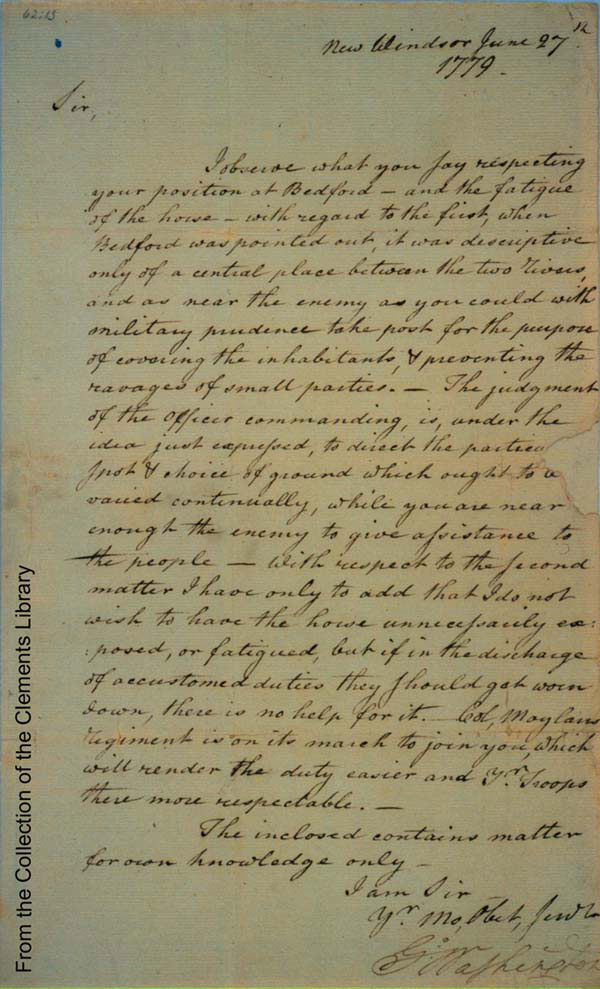 62:15
New Windsor June 27th
1779.
Sir,
I observe what you say respecting
your position at Bedford — and the fatigue
of the horse — with regard to the first, when
Bedford was pointed out, it was descriptive
only of a central place between the two rivers,
and as near the enemy as you could with
military prudence take post for the purpose
of covering the inhabitants, & preventing the
ravages of small parties. — The judgment
of the Officer commanding, is, under the
idea just expressed, to direct the particu
spot & choice of ground which ought to
varied continually, while you are near
enough the enemy to give assistance to
the people — with respect to the second
matter I have only to add that I do not
wish to have the horse unnecessarily ex:
:posed, or fatigued, but if in the discharge
of accustomed duties they should get worn
down, there is no help for it. — Col, Moylans
regiment is on its march to join you, which
will render the duty easier and Yr. Troops
there more respectable. —
The inclosed contains matter
for own knowledge only —
I am Sir
Yr. Mo, Obet, Servt
Go: Washington
From the Collection of the Clements Library